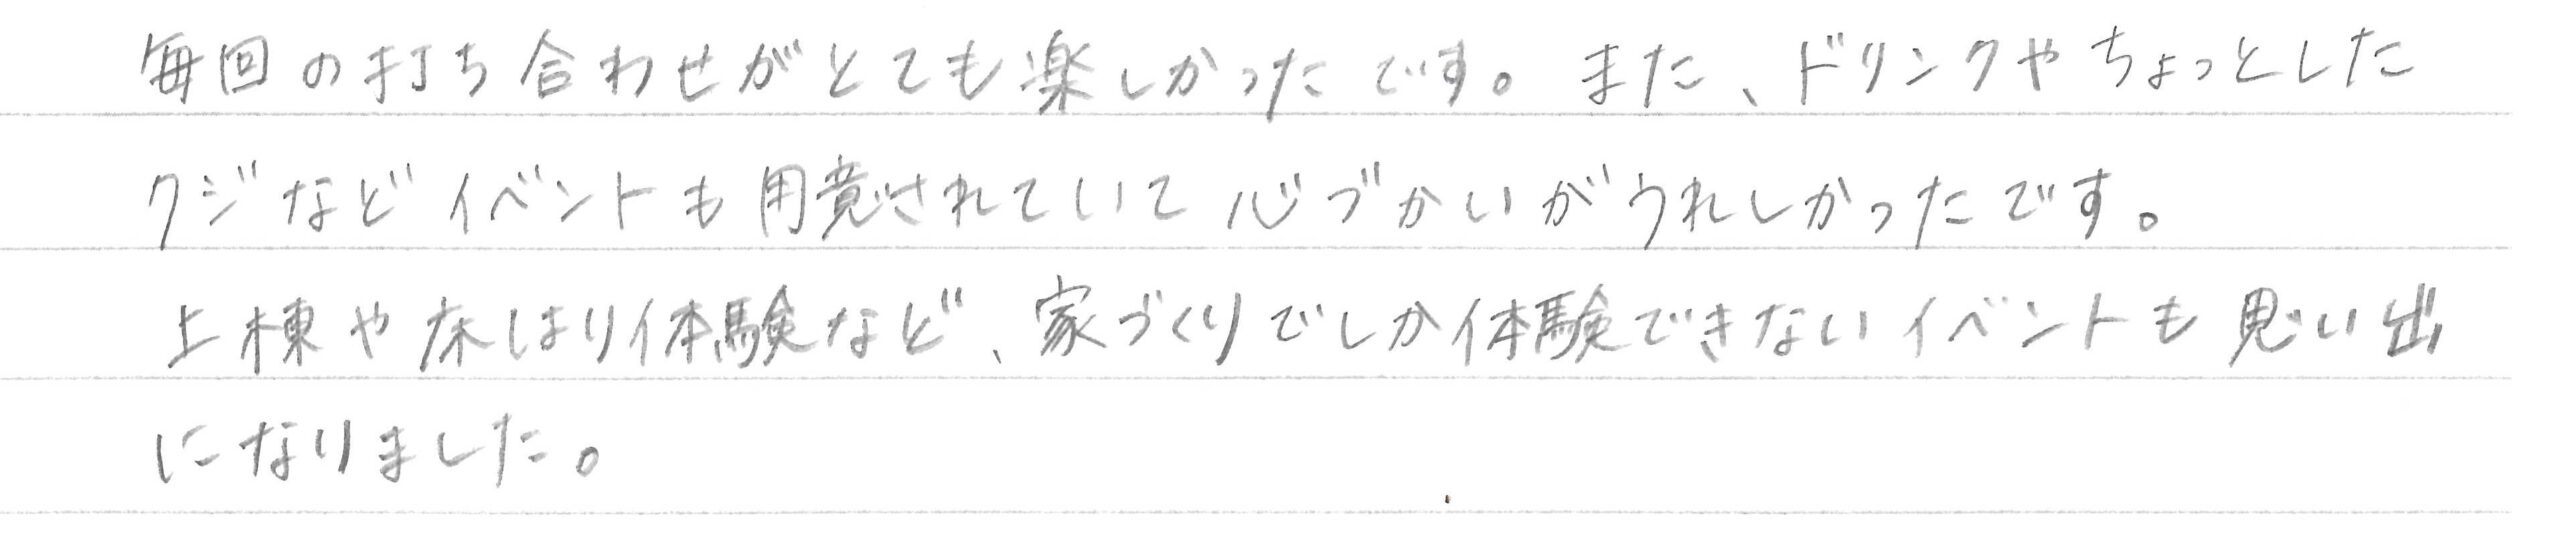 毎回の打ち合わせがとても楽しかったです。また、ドリンクやちょっとした
クジなどイベントも用意されていて心づかいがうれしかったです。
上棟や床はり体験など、家づくりでしか体験できないイベントも思い出
になりました。